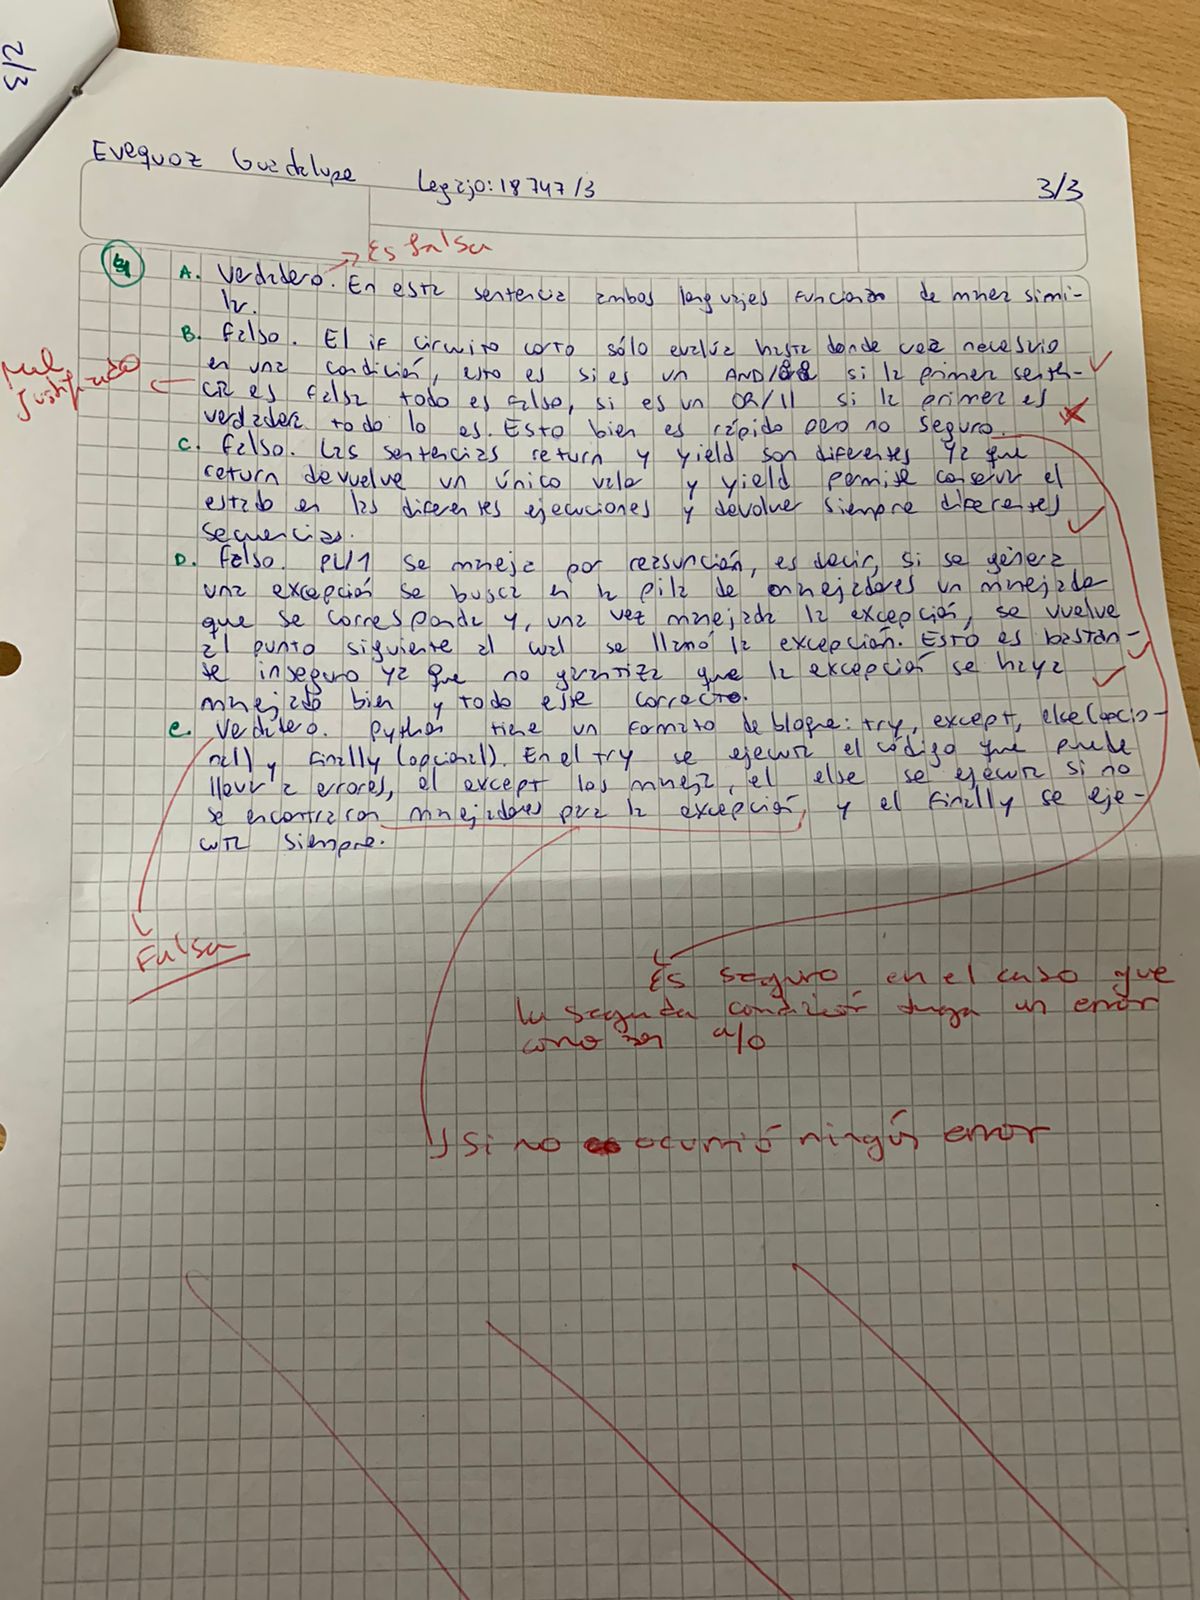 2/3
Evequoz Guadalupe Legajo: 18747/3 3/3
→ Es falsa
4 A. Verdadero. En esta sentencia ambos lenguajes funcionan de maner simi-
lar.
B. Falso. El if circuito corto sólo evalúa hasta donde vea necesario
en una condición, esto es si es un AND/&& si la primer senten-
cia es falsa todo es falso, si es un OR/|| si la primer es
verdadera todo lo es. Esto bien es rápido pero no seguro.
Mal
Justificado
C. Falso. Las sentencias return y yield son diferentes ya que
return devuelve un único valor y yield permite conservar el
estado en las diferentes ejecuciones y devolver siempre diferentes
secuencias.
D. Falso. PL/1 se maneja por reasunción, es decir, si se genera
una excepción se busca en la pila de manejadores un manejador
que se corresponda y, una vez manejada la excepción, se vuelve
al punto siguiente al cual se llamó la excepción. Esto es bastan-
te inseguro ya que no garantiza que la excepción se haya
manejado bien y todo este correcto.
e. Verdadero. Python tiene un formato de bloque: try, except, else (opcio-
nal) y finally (opcional). En el try se ejecuta el código que puede
llevar a errores, el except los maneja, el else se ejecuta si no
se encontraron manejadores para la excepción, y el finally se eje-
cuta siempre.
Falsa
Es seguro en el caso que
la segunda condición tenga un error
como ser a/0
Si no ocurrió ningún error